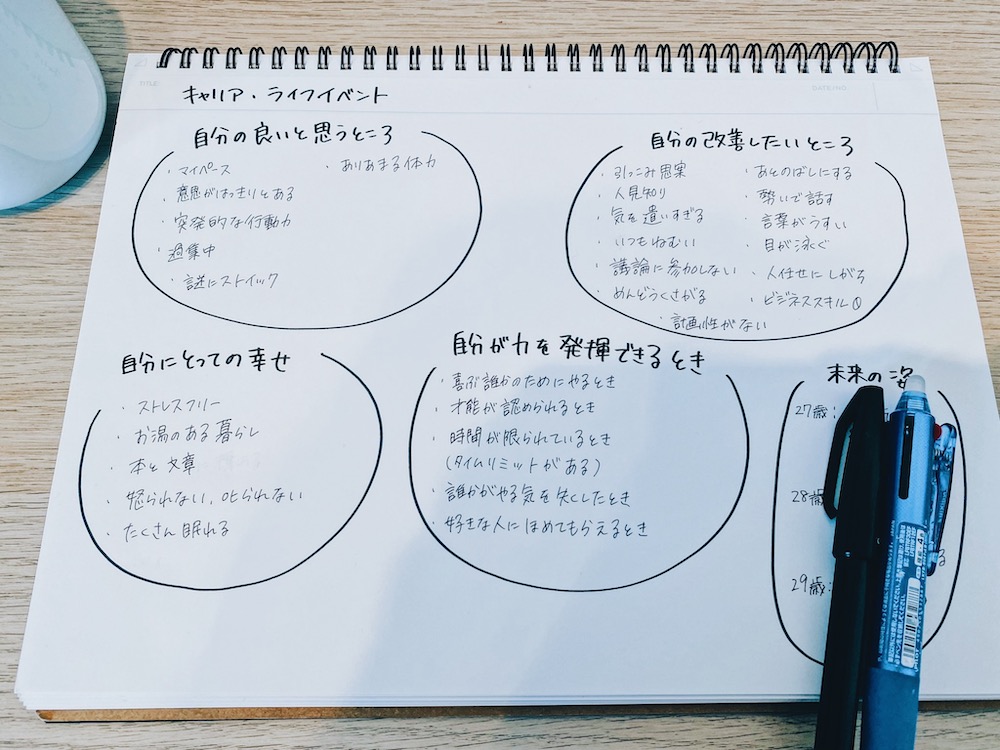 TITLE
DATE/NO.
キャリア・ライフイベント
自分の良いと思うところ
・マイペース
・ありあまる体力
・意思がはっきりとある
・突発的な行動力
・過集中
・謎にストイック
自分の改善したいところ
・引っこみ思案
・人見知り
・気を遣いすぎる
・いつもねむい
・議論に参加しない
・めんどうくさがる
・計画性がない
・あとのばしにする
・勢いで話す
・言葉がうすい
・目が泳ぐ
・人任せにしがち
・ビジネススキル
自分にとっての幸せ
・ストレスフリー
・お湯のある暮らし
・本と文章
・怒られない、叱られない
・たくさん眠れる
自分が力を発揮できるとき
・喜ぶ誰かのためにやるとき
・才能が認められるとき
・時間が限られているとき
(タイムリミットがある)
・誰かがやる気を失くしたとき
・好きな人にほめてもらえるとき
未来の姿
27歳:
28歳
29歳:
る